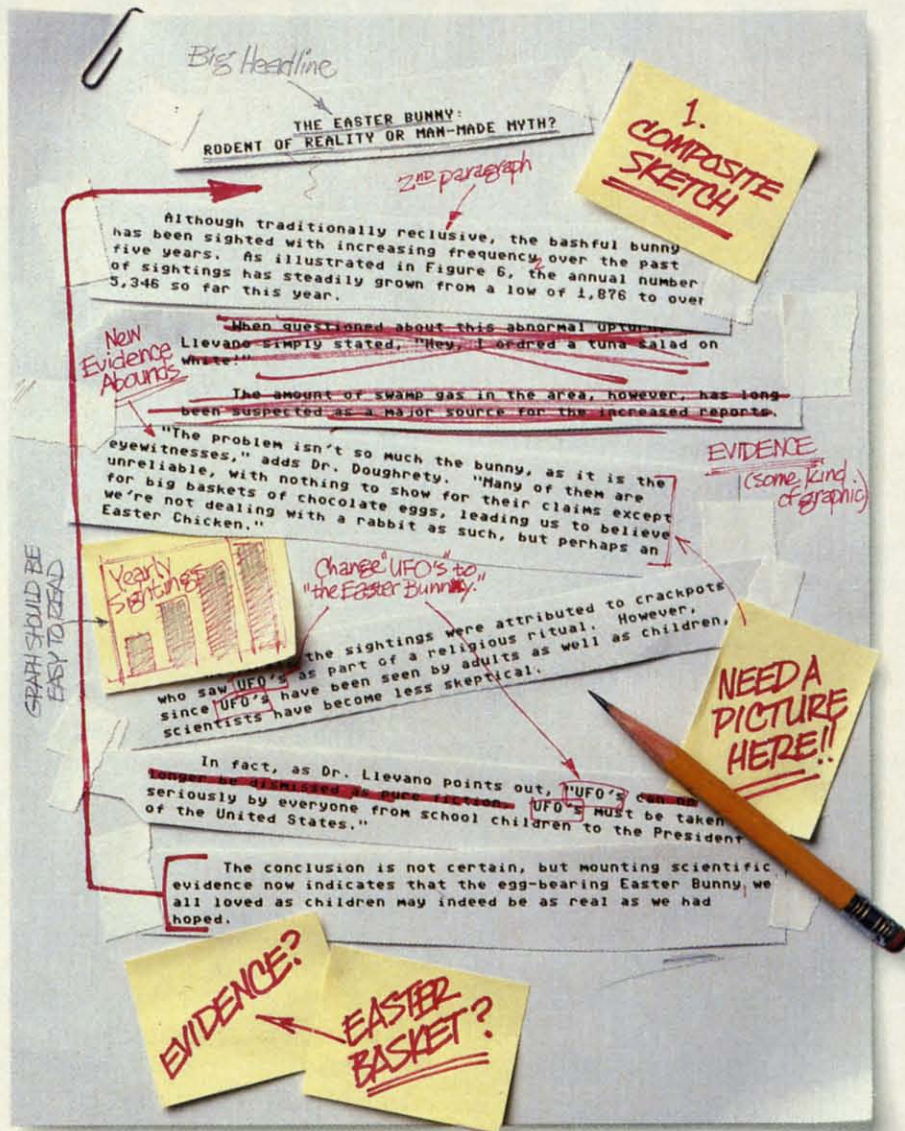 Big Headline
THE EASTER BUNNY:
RODENT OF REALITY OR MAN-MADE MYTH?
1.
COMPOSITE
SKETCH
2ND paragraph
Although traditionally reclusive, the bashful bunny
has been sighted with increasing frequency over the past
five years. As illustrated in Figure 6, the annual number
of sightings has steadily grown from a low of 1,876 to over
5,346 so far this year.
When questioned about this abnormal upturn
Llevano simply stated, "Hey, I ordred a tuna salad on
white!"
New
Evidence
Abounds
The amount of swamp gas in the area, however, has long
been suspected as a major source for the increased reports.
"The problem isn't so much the bunny, as it is the
eyewitnesses," adds Dr. Doughrety. "Many of them are
unreliable, with nothing to show for their claims except
for big baskets of chocolate eggs, leading us to believe
we're not dealing with a rabbit as such, but perhaps an
Easter Chicken."
EVIDENCE
(some kind
of graphic)
GRAPH SHOULD BE
EASY TO READ
Yearly
Sightings
Change "UFO's" to
"the Easter Bunny."
the sightings were attributed to crackpots
who saw UFO's as part of a religious ritual. However,
since UFO's have been seen by adults as well as children,
scientists have become less skeptical.
NEED A
PICTURE
HERE!!
In fact, as Dr. Llevano points out, "UFO's can no
longer be dismissed as pure fiction. UFO's must be taken
seriously by everyone from school children to the President
of the United States."
The conclusion is not certain, but mounting scientific
evidence now indicates that the egg-bearing Easter Bunny, we
all loved as children may indeed be as real as we had
hoped.
EVIDENCE?
EASTER
BASKET?